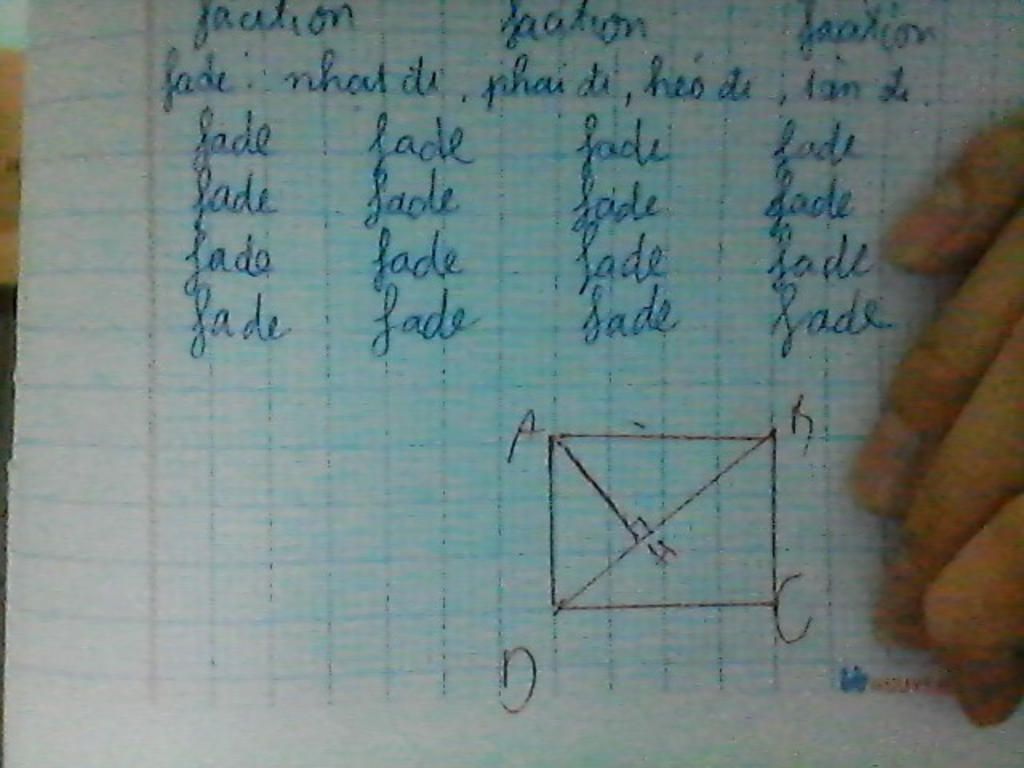 faction faction faction
fade: nhạt đi, phai đi, héo đi, tàn đi.
fade fade fade fade
fade fade fade fade
fade fade fade fade
fade fade fade fade
A B
H
D C